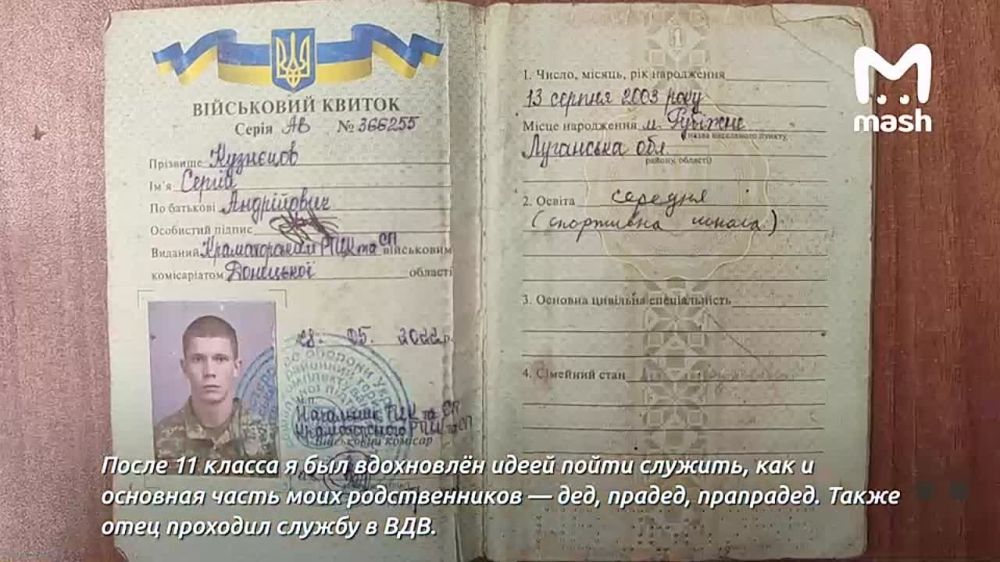 ВІЙСЬКОВИЙ КВИТОК
Серія АВ № 366255
Прізвище Кузнєцов
Ім'я Сергій
По батькові Андрійович
Особистий підпис
Виданий Краматорським РТЦК та СП військовим
комісаріатом Донецької області
28. 05. 2022р.
Начальник РТЦК та СП
Краматорського РТЦК та СП
Військовий комісар
1
1. Число, місяць, рік народження
13 серпня 2003 року
Місце народження м. Рубіжне
(назва населеного пункту,
Луганська обл.
району, області)
2. Освіта середня
(спортивна школа)
3. Основна цивільна спеціальність
4. Сімейний стан
mash
После 11 класса я был вдохновлён идеей пойти служить, как и
основная часть моих родственников — дед, прадед, прапрадед. Также
отец проходил службу в ВДВ.